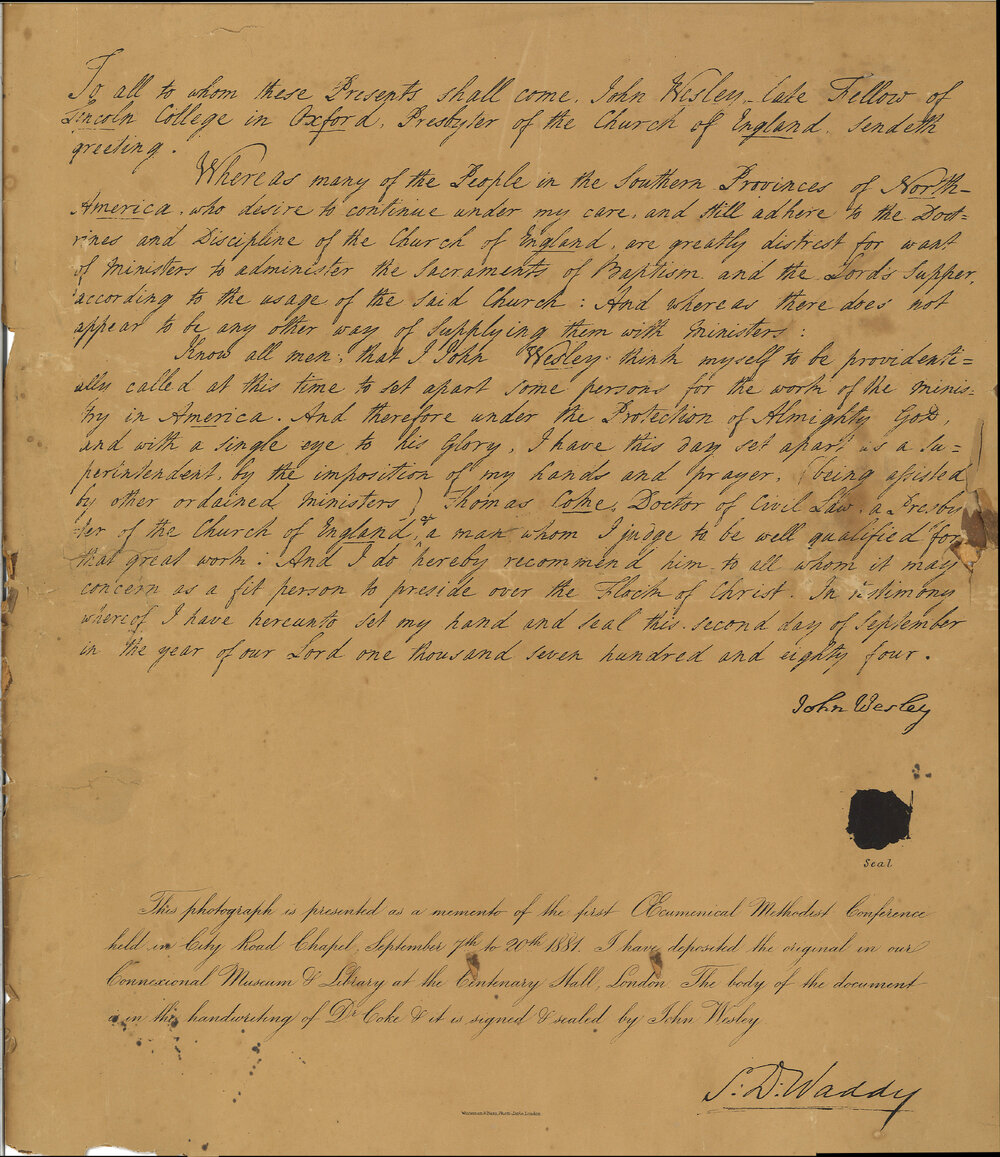 To all to whom these Presents shall come, John Wesley, late Fellow of
Lincoln College in Oxford, Presbyter of the Church of England, sendeth
greeting.
Whereas many of the People in the Southern Provinces of North-
America, who desire to continue under my care, and still adhere to the Doct=
rines and Discipline of the Church of England, are greatly distrest for want
of Ministers to administer the Sacraments of Baptism and the Lord's Supper,
according to the usage of the said Church: And whereas there does not
appear to be any other way of supplying them with Ministers:
Know all men, that I John Wesley think myself to be providenti=
ally called at this time to set apart some persons for the work of the minis=
try in America. And therefore under the Protection of Almighty God,
and with a single eye to his Glory, I have this day set apart as a Su=
perintendent, by the imposition of my hands and prayer, (being assisted
by other ordained Ministers) Thomas Coke, Doctor of Civil Law, a Presby
=ter of the Church of England, & a man whom I judge to be well qualified for
that great work. And I do hereby recommend him to all whom it may
concern as a fit person to preside over the Flock of Christ. In testimony
whereof I have hereunto set my hand and seal this second day of September
in the year of our Lord one thousand seven hundred and eighty four.
John Wesley
Seal
This photograph is presented as a memento of the first Œcumenical Methodist Conference
held in City Road Chapel, September 7th to 20th 1881. I have deposited the original in our
Connexional Museum & Library at the Centenary Hall, London The body of the document
is in the handwriting of Dr Coke & it is signed & sealed by John Wesley
S. D. Waddy
London